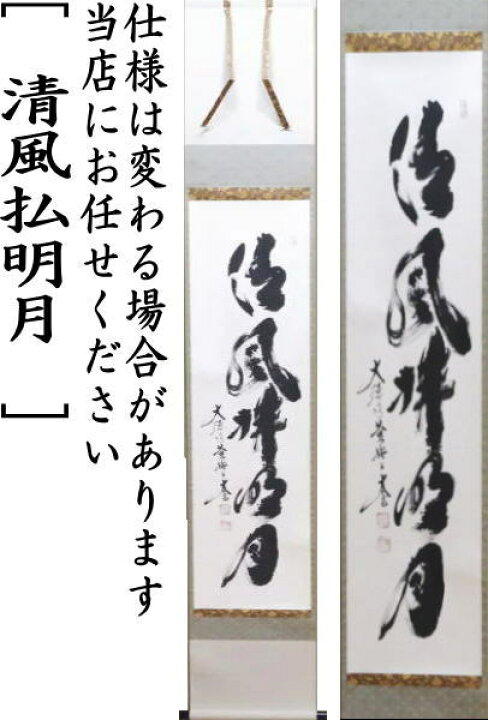 清風拂明月
清風拂明月
仕様は変わる場合があります
当店にお任せください
［ 清風払明月 ］